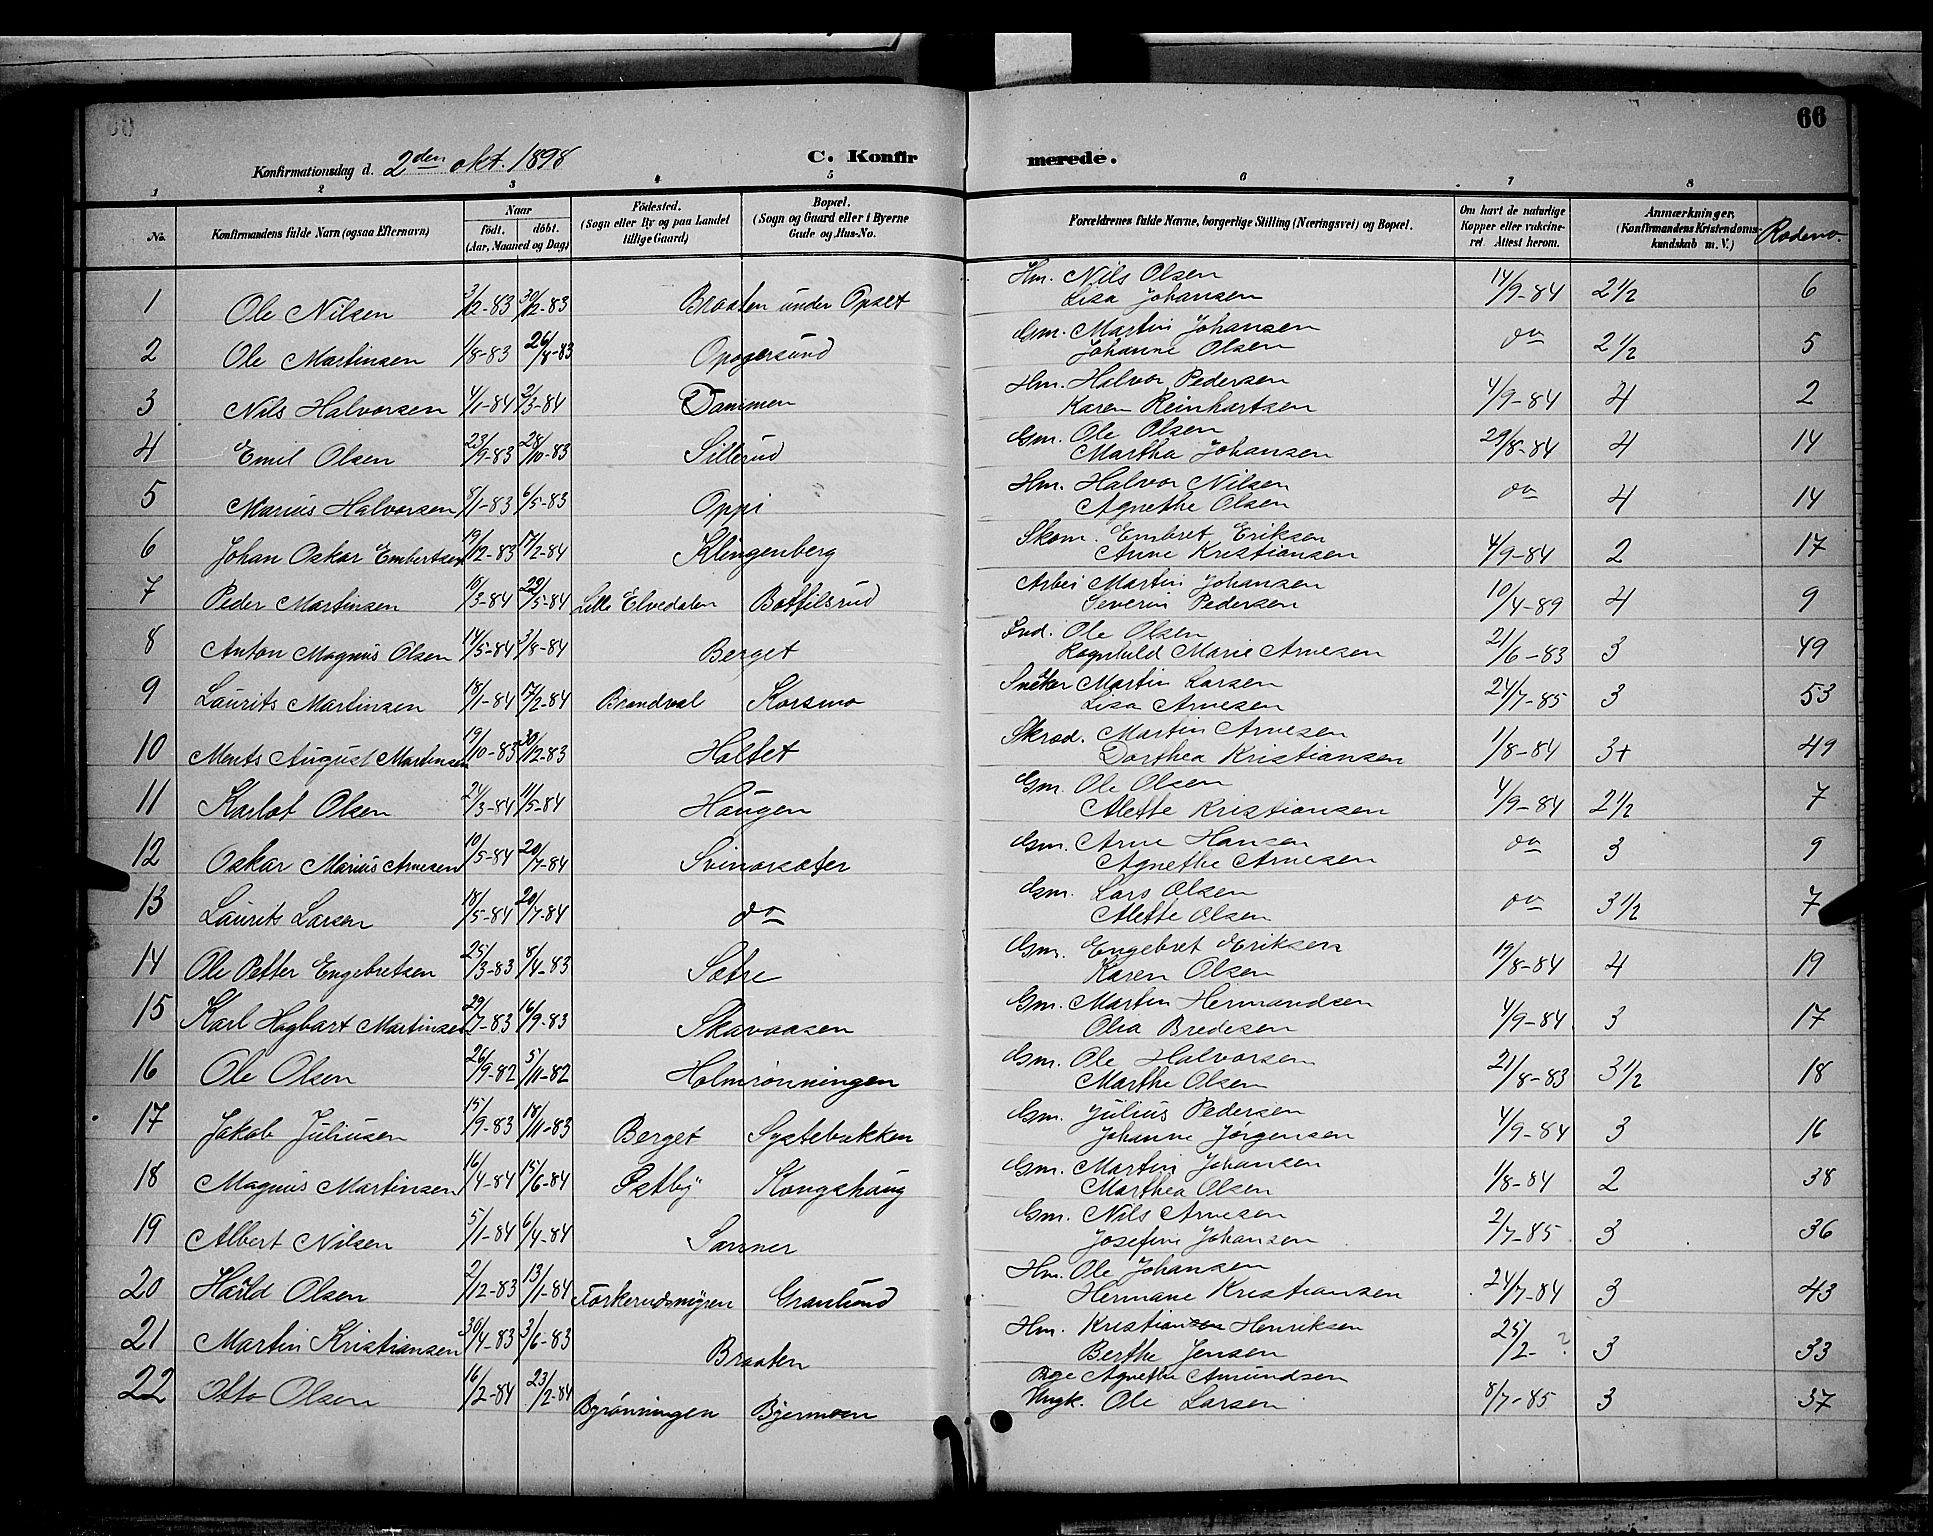 66
Konfirmationsdag d. 2den okt. 1898 C. Konfirmerede.
1 2 3 4 5 6 7 8
No. Konfirmandens fulde Navn (ogsaa Efternavn) Naar födt. döbt. (Aar, Maaned og Dag) Födested. (Sogn eller By og paa Landet tillige Gaard) Bopæl. (Sogn og Gaard eller i Byerne Gade og Hus-No. Forældrenes fulde Navne, borgerlige Stilling (Næringsvei) og Bopæl. Om havt de naturlige Kopper eller vakcineret. Attest herom. Anmærkninger, (Konfirmandens Kristendomskundskab m. V.) Rodeno.
1 Ole Nilsen 3/12-83 30/12-83 Braaten under Opset Hm. Nils Olsen 14/9-84 2 1/2 6
Lisa Johansen
2 Ole Martinsen 1/8-83 26/8-83 Opogersund Gm. Martin Johansen do 2 1/2 5
Johanne Olsen
3 Nils Halvorsen 4/1-84 2/3-84 Dammen Hm. Halvor Pedersen 4/9-84 4 2
Karen Reinhartsen
4 Emil Olsen 23/9-83 28/10-83 Sillerud Gm. Ole Olsen 29/8-84 4 14
Martha Johansen
5 Marius Halvorsen 8/1-83 6/5-83 Oppi Hm. Halvor Nilsen do 4 14
Agnethe Olsen
6 Johan Oskar Embertsen 19/12-83 17/2-84 Klingenberg Skom. Embret Eriksen 4/9-84 2 17
Anne Kristiansen
7 Peder Martinsen 10/3-84 22/5-84 Lille Elvedalen Bottilsrud Arbei Martin Johansen 10/4-89 4 9
Severin Pedersen
8 Anton Magnus Olsen 14/5-84 3/8-84 Berget Ind. Ole Olsen 21/6-83 3 49
Ragnhild Marie Arnesen
9 Laurits Martinsen 18/1-84 17/2-84 Brandval Korsmo Snekker Martin Larsen 24/7-85 3 53
Lisa Arnesen
10 Merits August Martinsen 19/10-83 30/12-83 Holtet Skrad. Martin Arnesen 1/8-84 3+ 49
Dorthea Kristiansen
11 Karlot Olsen 24/3-84 11/5-84 Haugen Gm. Ole Olsen 4/9-84 2 1/2 7
Alette Kristiansen
12 Oskar Marius Arnesen 10/5-84 20/7-84 Svinarsæter Gm. Arne Hansen do 3 9
Agnethe Arnesen
13 Laurits Larsen 18/5-84 20/7-84 do Gm. Lars Olsen do 3 1/2 7
Alette Olsen
14 Ole Petter Engebretsen 25/3-83 8/4-83 Sætre Gm. Engebret Eriksen 19/8-84 4 19
Karen Olsen
15 Karl Hagbart Martinsen 29/7-83 16/9-83 Skavaasen Gm. Martin Hermandsen 4/9-84 3 17
Olia Bredesen
16 Ole Olsen 26/9-82 5/11-82 Holmrønningen Gm. Ole Halvorsen 21/8-83 3 1/2 18
Marthe Olsen
17 Jakob Juliusen 15/9-83 18/11-83 Berget Systebakken Gm. Julius Pedersen 4/9-84 3 16
Johanne Jørgensen
18 Magnus Martinsen 16/4-84 15/6-84 Østby Kongshaug Gm. Martin Johansen 1/8-84 2 38
Marthea Olsen
19 Albert Nilsen 5/1-84 6/4-84 Sanner Gm. Nils Arnesen 2/7-85 3 36
Josefine Johansen
20 Harld Olsen 2/12-83 13/1-84 Torkerudsmyren Granlund Hm. Ole Johansen 24/7-84 3 43
Hermane Kristiansen
21 Martin Kristiansen 30/4-83 3/6-83 Braaten Hm. Kristiansen Henriksen 25/2- ? 3 33
Berthe Jensen
22 Otto Olsen 16/2-84 23/2-84 Byrønningen Bjermoen Pige Agnethe Amundsen 8/7-85 3 37
Ungk. Ole Larsen